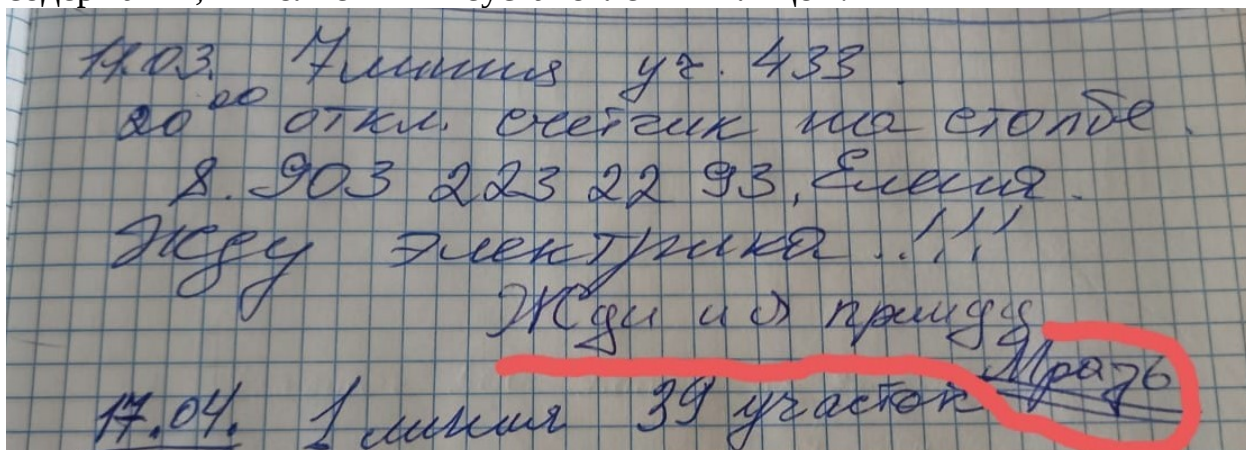 11.03. 7 линия уч. 433.
20⁰⁰ откл. счетчик на столбе.
8. 903 223 22 93, Елена.
Жду электрика!!!
Жди и я прииду
Мразь
17.04. 1 линия 39 участок